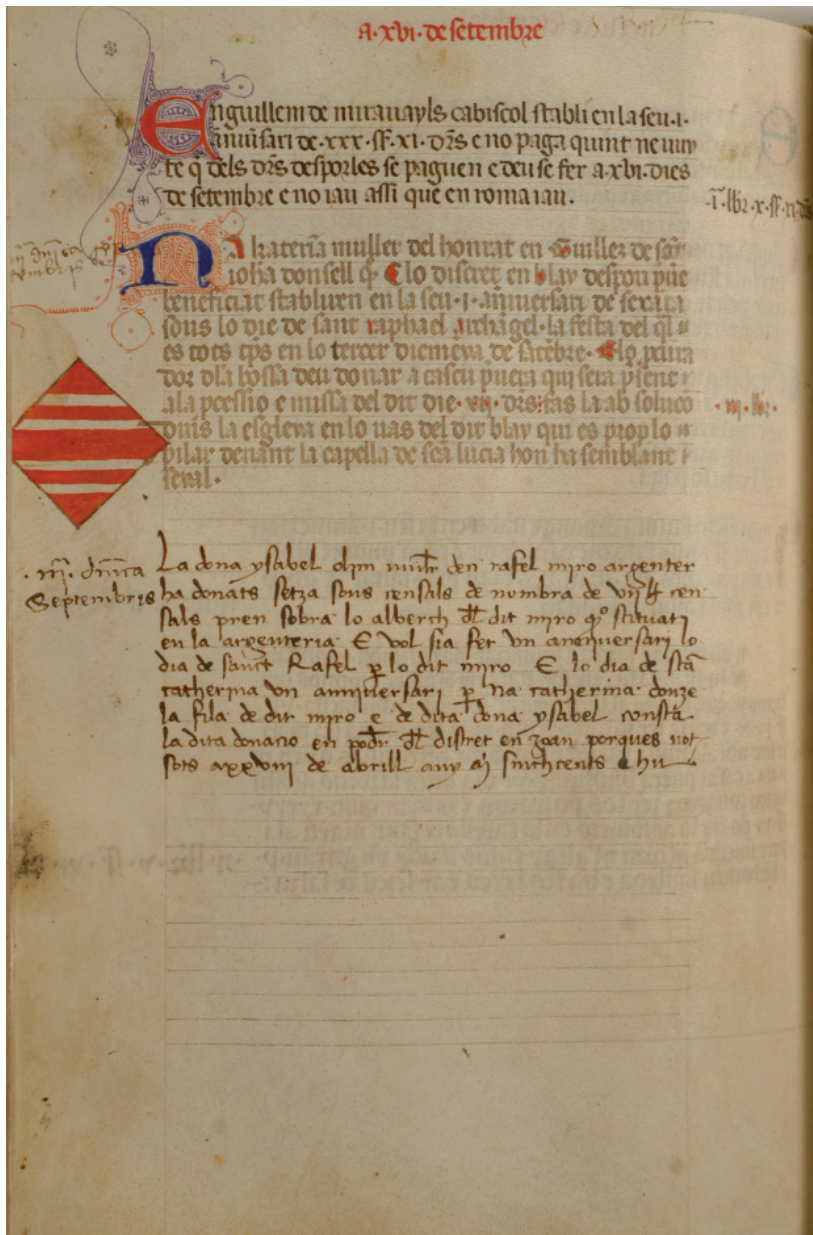 a·xvi·de setembre
En guillem de miravayls cabiscol stabli en la seu·i·
aniũsari de·xxx·ss̃·xi·drs̃ e no paga quint ne vuy
te q̃ dels drs̃ desporles se paguen e deu se fer a·xvi·dies
de setembre e no iau assi que en roma iau.
·ĩ·lbr·x·ss̃·n·ds̃
Na katerĩa muller del honrat en Guillez de sañ
ioha donsell q̃· E lo discret en blay despou p̃ue
beneficiat stabliren en la seu·i·añiuersari de
sous lo die de sant raphael archãgel·la festa del q̃l
es tots tp̃s en lo tercer diemẽga de setẽbre· E lo
dor dla bossa deu donar a cascu p̃uera qui sera p̃sent
a la p̃cessio e missa del dit die· vij·drs̃: fas la absolucõ
dins la esgleya en lo uas del dit blay qui es prop lo
pilar denant la capella de scã lucia hon ha semblant
senal·
·iij·lbr·
·iij· dñica
Septembris
La dona ysabel olim mult̃r den rafel miro argenter
ha donats setza sous censals de nombra de vij ll̃ cen
sals pren sobra lo alberch dl̃ dit miro q̃º stituati
en la argenteria· E vol sia fet vn anniuersari lo
dia de sanct Rafel p̃ lo dit miro E lo dia de stã
catherina vn anniuersari p̃ na catherina donze
la fila de dit miro e de dita dona ysabel consta
la dita donacio en pod̃r dl̃ distret en joan porques not
sots axxviiij de abrill any mj sinchcents e hu